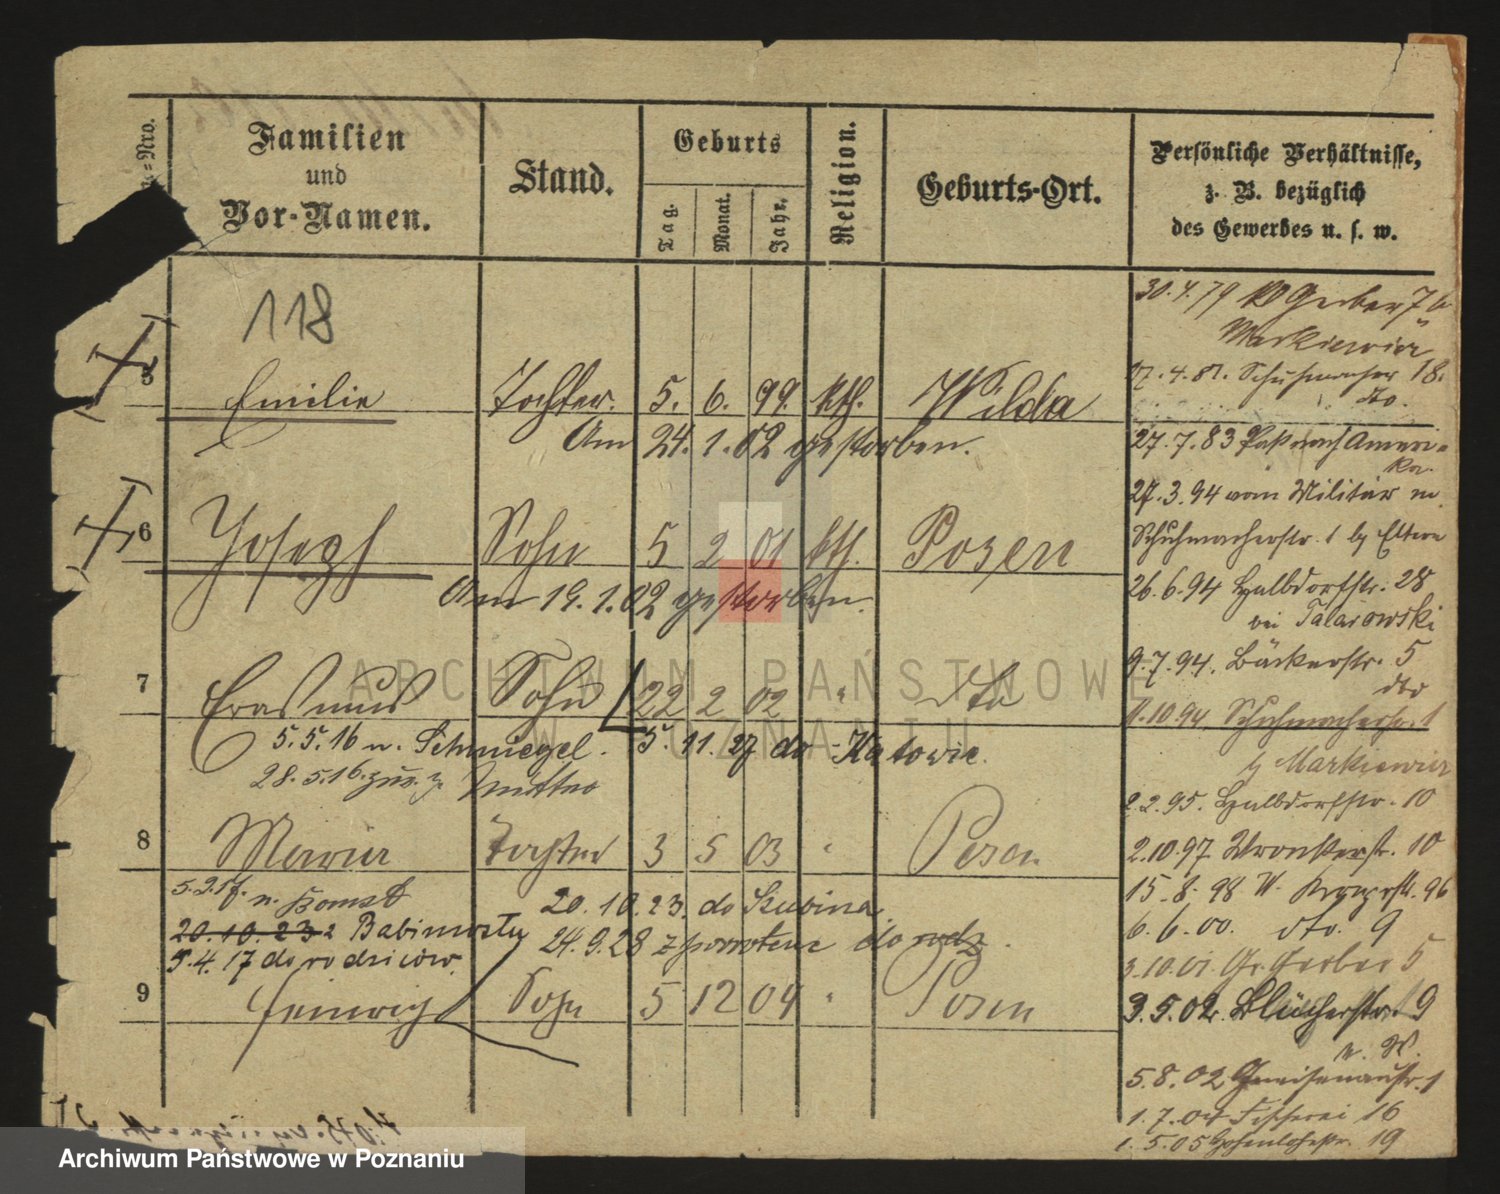 Familien
und
Vor-Namen.
Stand.
Geburts
Tag.
Monat.
Jahr.
Religion.
Geburts-Ort.
Persönliche Verhältnisse,
z. B. bezüglich
des Gewerbes u. s. w.
118
Emilie Tochter. 5. 6. 99. kth. Wilda
Am 24. 1. 02 gestorben.
6 Joseph Sohn 5 2 01 kth. Posen
Am 19. 1. 02 gestorben.
7 Erasmus Sohn 22 2 02 " dto
5.5.16 n. Schmiegel. 5. 11. 27 do Katowic.
28.5.16. zur. z. Mutter
8 Maria Tochter 3 5 03 " Posen
n. Bomst 20. 10. 23. do Szubina.
20.10.23 z Babimostu 24.9.28 z powrotem do rodz.
5.4.17 do rodziców.
9 Heinrich Sohn 5 12 04 " Posen
30.4.79 Gerber 7 b
Markiewicz
17.4.81. Schuhmacher 18.
dto.
27.7.83 Paß nach Ameri=
ka.
27.3.94 vom Militär
Schuhmacherstr. 1 by Eltern
26.6.94 Halbdorfstr. 28
bei Talarowski
9.7.94. Bäckerstr. 5
dto
1.10.94 Schuhmacherstr. 1
by Markiewicz
2.2.95. Halbdorfstr. 10
2.10.97 Wronkerstr. 10
15.8.98 W. 96
6.6.00. dto. 9
3.10.01. Gr. Gerber 5
3.5.02. Blücherstr. 9
n. W.
5.8.02 Gneisenaustr. 1
1.7.04 Fischerei 16
1.5.05 Hohenlohestr. 19
ARCHIWUM PAŃSTWOWE
W POZNANIU
Archiwum Państwowe w Poznaniu